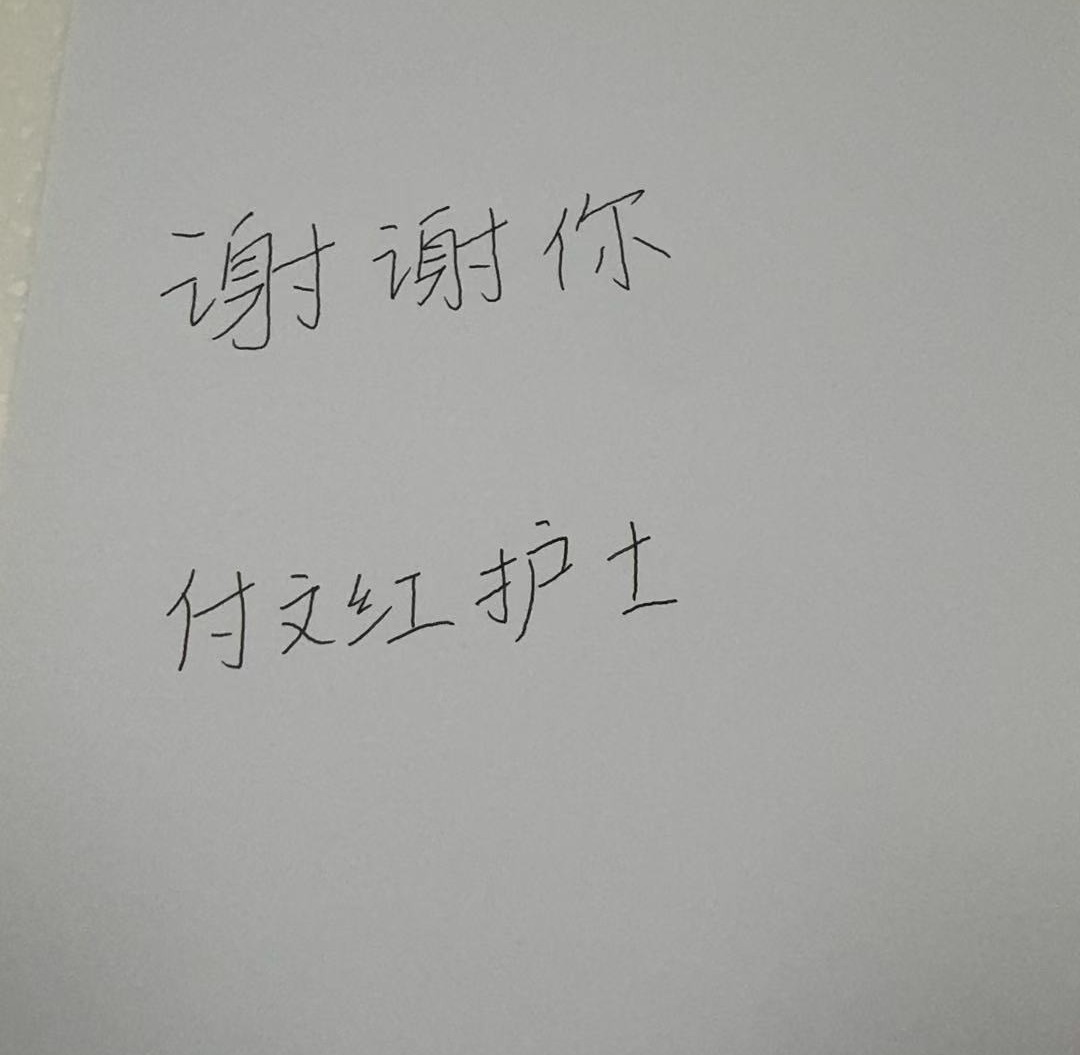 谢谢你
付文红护士